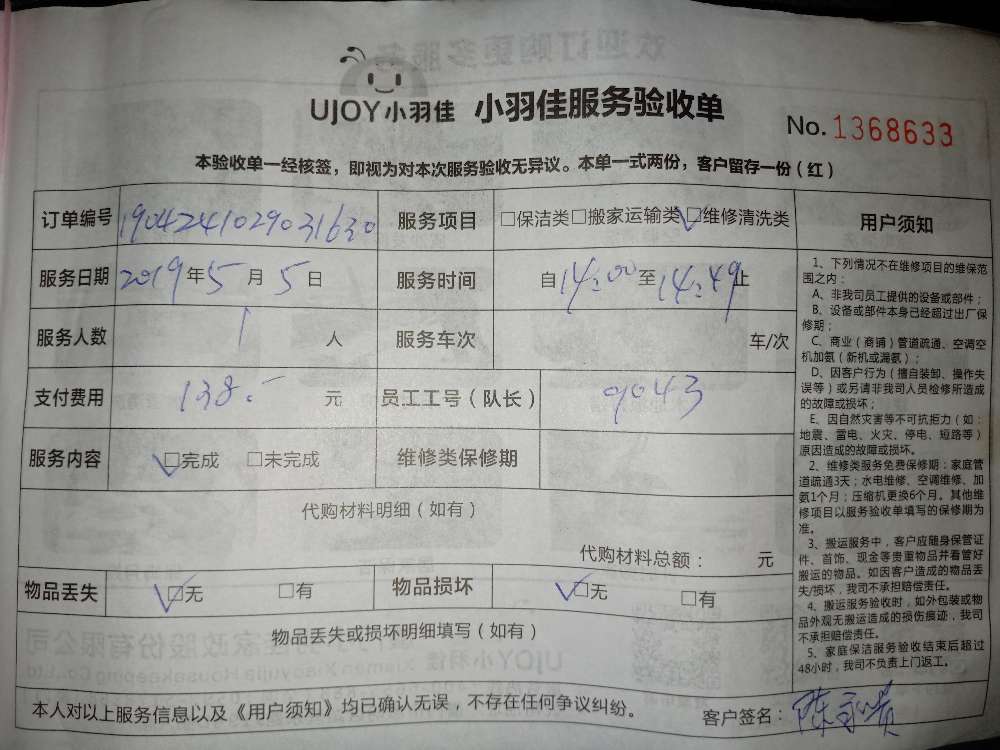 UJOY小羽佳 小羽佳服务验收单
No. 1368633
本验收单一经核签，即视为对本次服务验收无异议。本单一式两份，客户留存一份（红）
订单编号 1904241029031630 服务项目 □保洁类□搬家运输类□维修清洗类
服务日期 2019年5月5日 服务时间 自14:00至14:49止
服务人数 1 人 服务车次 车/次
支付费用 138.- 元 员工工号（队长） 9043
服务内容 □完成 □未完成 维修类保修期
代购材料明细（如有）
代购材料总额： 元
物品丢失 □无 □有 物品损坏 □无 □有
物品丢失或损坏明细填写（如有）
本人对以上服务信息以及《用户须知》均已确认无误，不存在任何争议纠纷。
客户签名：陈
用户须知
1、下列情况不在维修项目的维保范
围之内：
A、非我司员工提供的设备或部件；
B、设备或部件本身已经超过出厂保
修期；
C、商业（商铺）管道疏通、空调空
机加氨（新机或漏氨）；
D、因客户行为（擅自装卸、操作失
误等）或另请非我司人员检修所造成
的故障或损坏；
E、因自然灾害等不可抗拒力（如：
地震、雷电、火灾、停电、短路等）
原因造成的故障或损坏。
2、维修类服务免费保修期：家庭管
道疏通3天；水电维修、空调维修、加
氨1个月；压缩机更换6个月。其他维
修项目以服务验收单填写的保修期为
准。
3、搬运服务中，客户应随身保管证
件、首饰、现金等贵重物品并看管好
搬运的物品。如因客户造成的物品丢
失/损坏，我司不承担赔偿责任。
4、搬运服务验收时，如外包装或物
品外观无搬运造成的损伤痕迹，我司
不承担赔偿责任。
5、家庭保洁服务验收结束后超过
48小时，我司不负责上门返工。